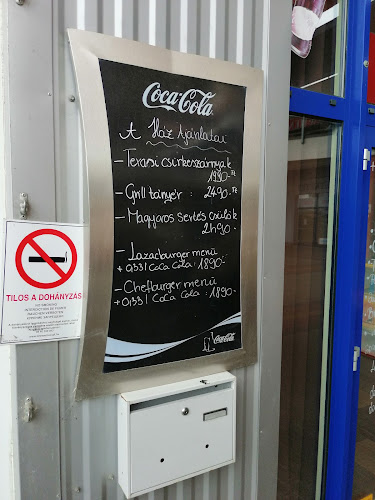 Coca-Cola
A Ház Ajánlatai
- Terasi csirkeszárnyak
1990.- Ft
- Grill tányér : 2490.- Ft
- Magyaros Sertés csülök
2490.-
- Lazacburger menü
+ 0,33 l Coca Cola : 1890.-
- Chefburger menü
+ 0,33 l Coca Cola : 1890.-
Coca-Cola
TILOS A DOHÁNYZÁS
NO SMOKING